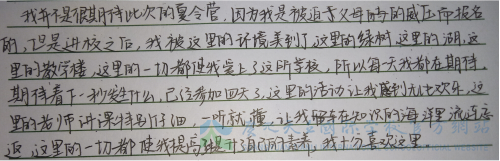 我并不是很期待此次的夏令营,因为我是被迫于父母的威压而报名
的,但是进校之后,我被这里的环境美到了,这里的绿树,这里的湖,这
里的教学楼,这里的一切都使我爱上了这所学校,所以每天我都在期待,
期待着下一秒发生什么,已经参加四天了,这里的活动让我感到无比欢乐,这
里的老师讲课特别仔细,一听就懂,让我能够在知识的海洋里流连忘
返,这里的一切都使我提高提升了自己的素养,我十分喜欢这里